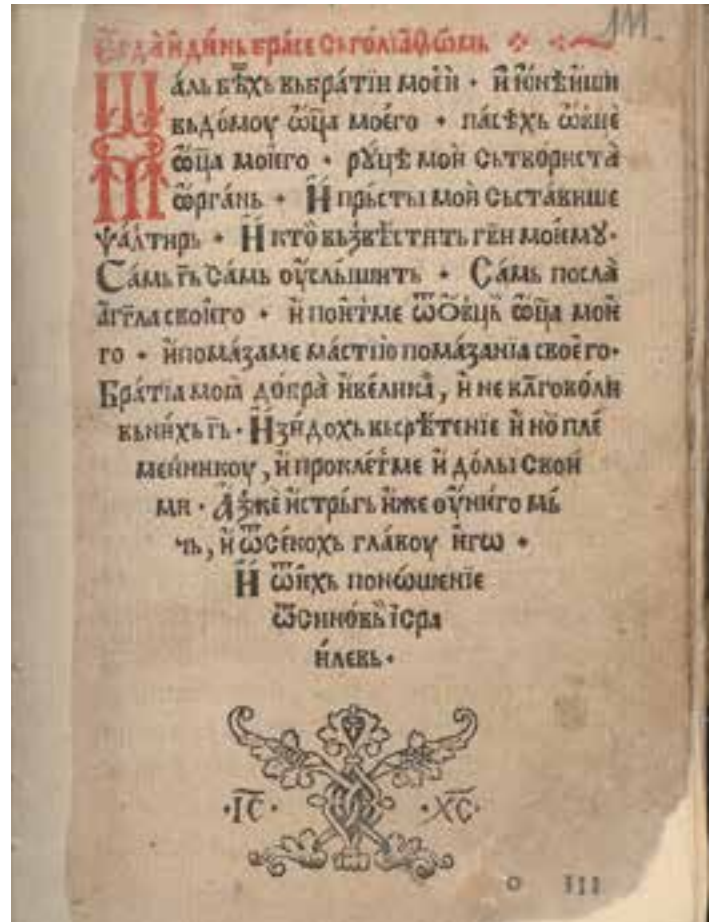 111.
Ѥгда̀ и҆ди́нь бра́се сь голїа́ѳѡмь
Ма́ль бѣ́хь вь бра́тїи мое́и · и҆ ю҆нѣ́иши
вь до́моу ѡ҆ц҃а мое́го · па́сѣхь ѡ҆вце̏
ѡ҆ц҃а моѥго · рꙋ́цѣ мои̏ сьтвори́ста̀
ѡ҆рга́нь · И҆ пры́сты мои̏ сьста́више
ѱа́лтирь · И҆ кто̀ вьзвѣ́стить г҃ви моѥмꙋ ·
Са́мь г҃ь са́мь оу҆слы́шить · Са́мь посла̀
а҆гг҃ла своѥго · и҆ поѥтме ѿ ѻ҆вць ѡ҆ц҃а моѥ
го · и҆ пома́заме ма́стїю пома́занїа свое́го ·
Бра́тїа моꙗ̀ до́бра̀ и҆ вели́ка̀, и҆ не бл҃гово́ли
вь ни́хь г҃ь · И҆зи́дохь вь срѣ́тенїе и҆нопле́
ме́нникоу, и҆ прокле́тме и҆до́лы свои́
ми · А҆́зже и҆стрь́гь и҆же оу҆ нѥго мь́
чь, и҆ ѿсе́кохь гла́воу ѥго ·
И҆ ѿѥхь поно́шенїе
ѿ сино́вь і҆сра
и́левь ·
· І҃С · · Х҃С ·
о ІІІ